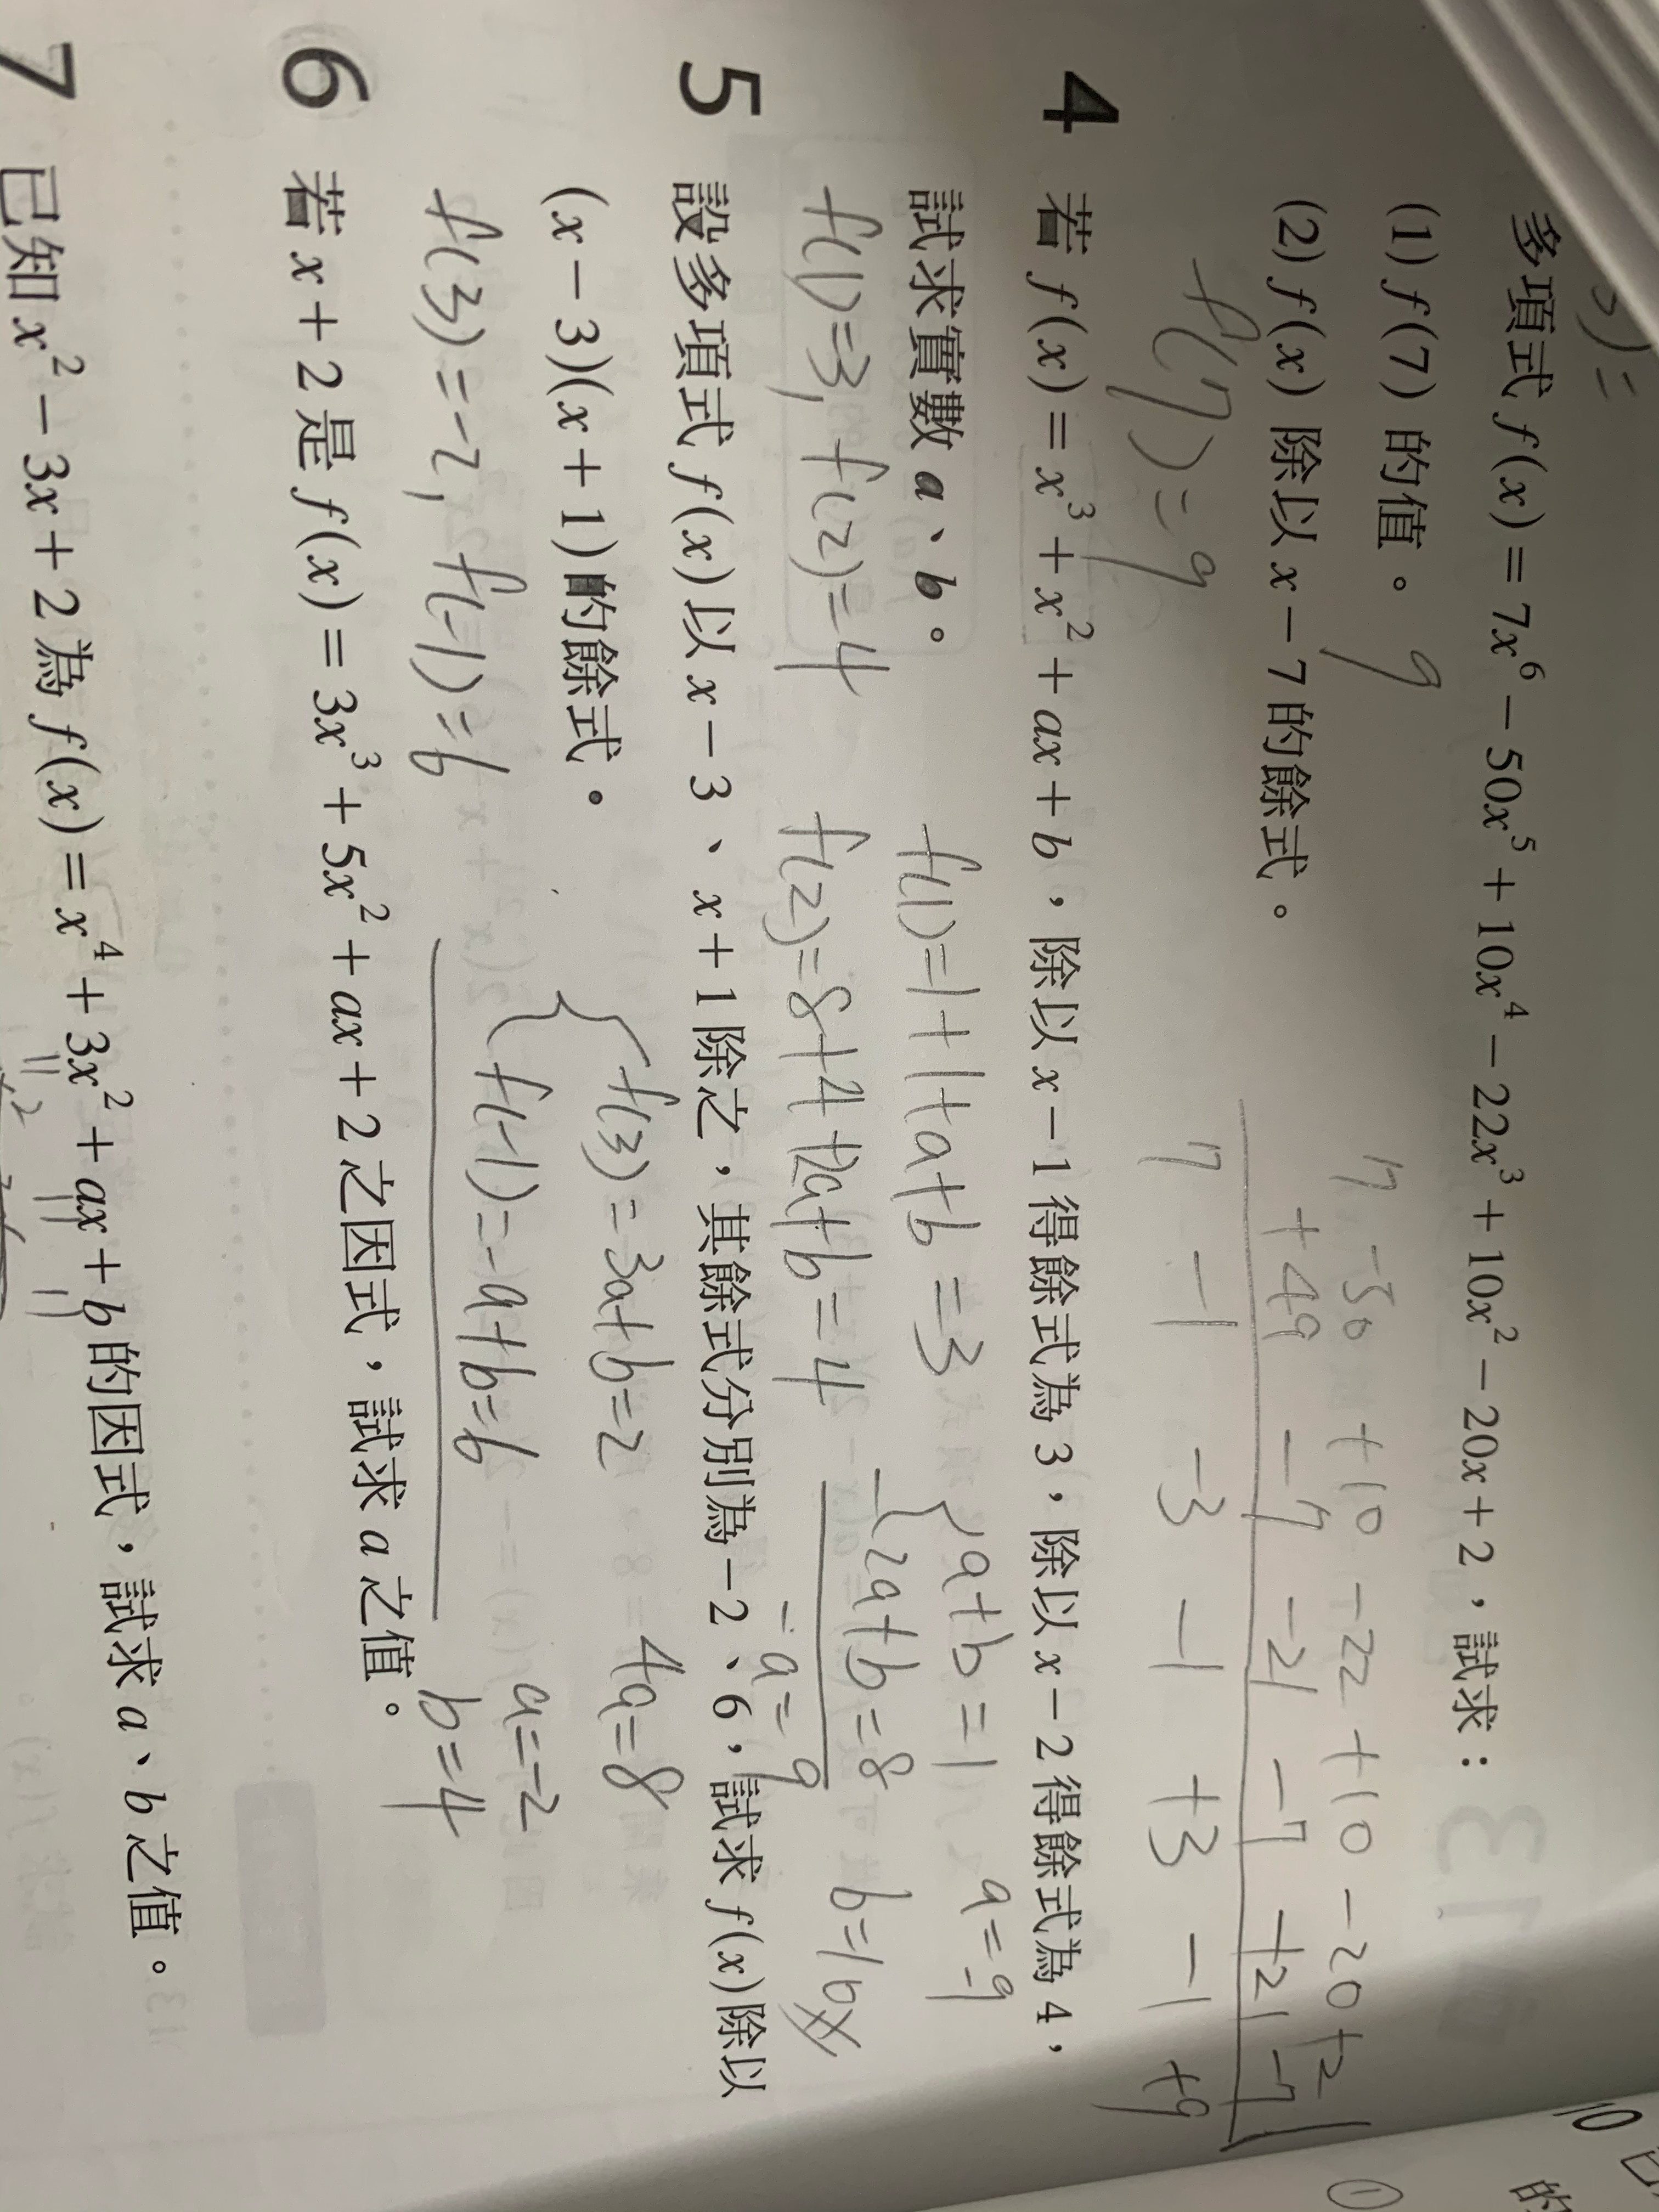 多項式 f(x) = 7x⁶ − 50x⁵ + 10x⁴ − 22x³ + 10x² − 20x + 2，試求：
(1) f(7) 的值。 9
(2) f(x) 除以 x − 7 的餘式。
f(7) = 9
7 −50 +10 −22 +10 −20 +2
+49 −7 −21 −7 +21 −7
7 −1 −3 −1 +3 −1 +9
4 若 f(x) = x³ + x² + ax + b，除以 x − 1 得餘式為 3，除以 x − 2 得餘式為 4，
試求實數 a、b。
f(1)=1+1+a+b=3
a+b=1
a=-9
f(1)=3, f(2)=4
f(2)=8+4+2a+b=4
2a+b=8
b=10
-a=9
5 設多項式 f(x) 以 x − 3、x + 1 除之，其餘式分別為 −2、6，試求 f(x) 除以
(x − 3)(x + 1) 的餘式。
f(3)=3a+b=2
4a=8
f(3)=-2, f(-1)=6
f(-1)=-a+b=6
a=-2
b=4
6 若 x + 2 是 f(x) = 3x³ + 5x² + ax + 2 之因式，試求 a 之值。
7 已知 x² − 3x + 2 為 f(x) = x⁴ + 3x² + ax + b 的因式，試求 a、b 之值。
10
①
的